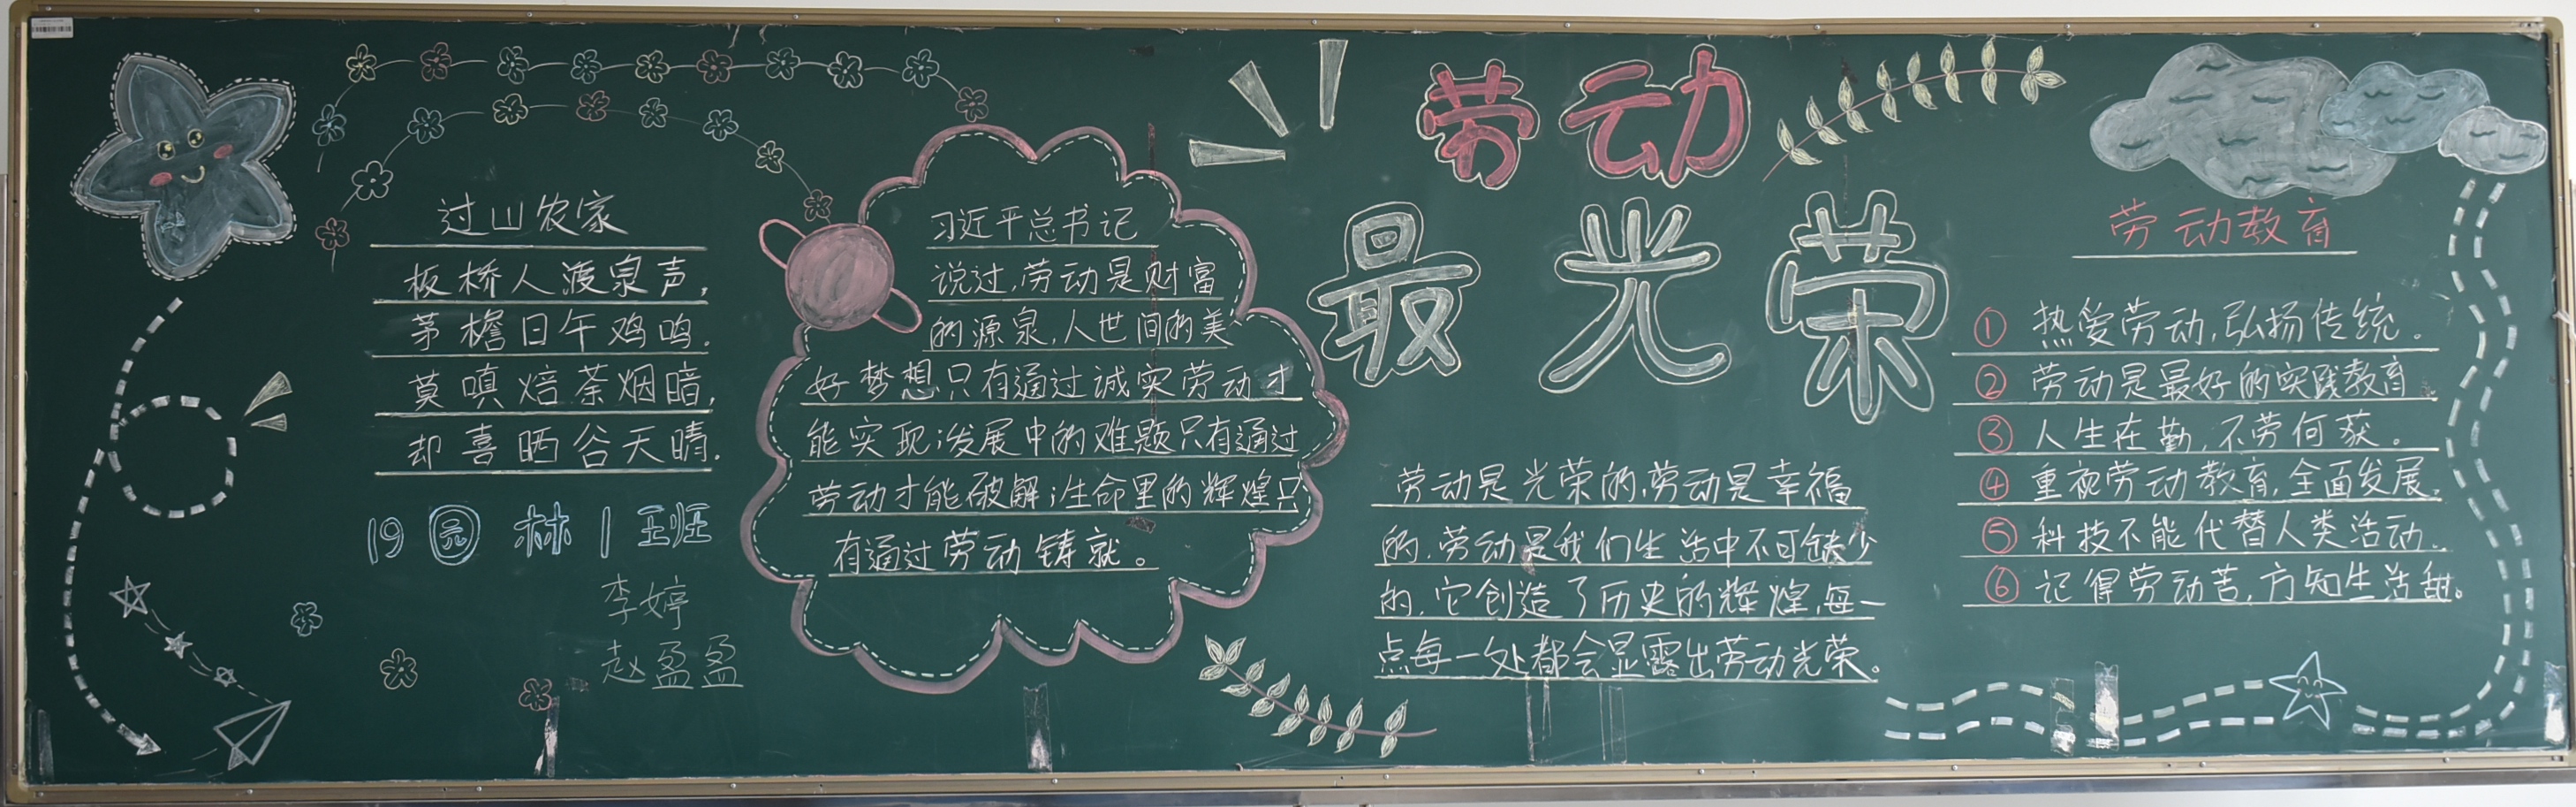 过山农家
板桥人渡泉声,
茅檐日午鸡鸣.
莫嗔焙茶烟暗,
却喜晒谷天晴.
19园林1班
李婷
赵盈盈
习近平总书记
说过,劳动是财富
的源泉,人世间的美
好梦想只有通过诚实劳动才
能实现;发展中的难题只有通过
劳动才能破解;生命里的辉煌只
有通过劳动铸就。
劳动
最光荣
劳动是光荣的,劳动是幸福
的,劳动是我们生活中不可缺少
的,它创造了历史的辉煌,每一
点每一处都会显露出劳动光荣。
劳动教育
① 热爱劳动,弘扬传统.
② 劳动是最好的实践教育.
③ 人生在勤,不劳何获.
④ 重视劳动教育,全面发展.
⑤ 科技不能代替人类活动.
⑥ 记得劳动苦,方知生活甜.